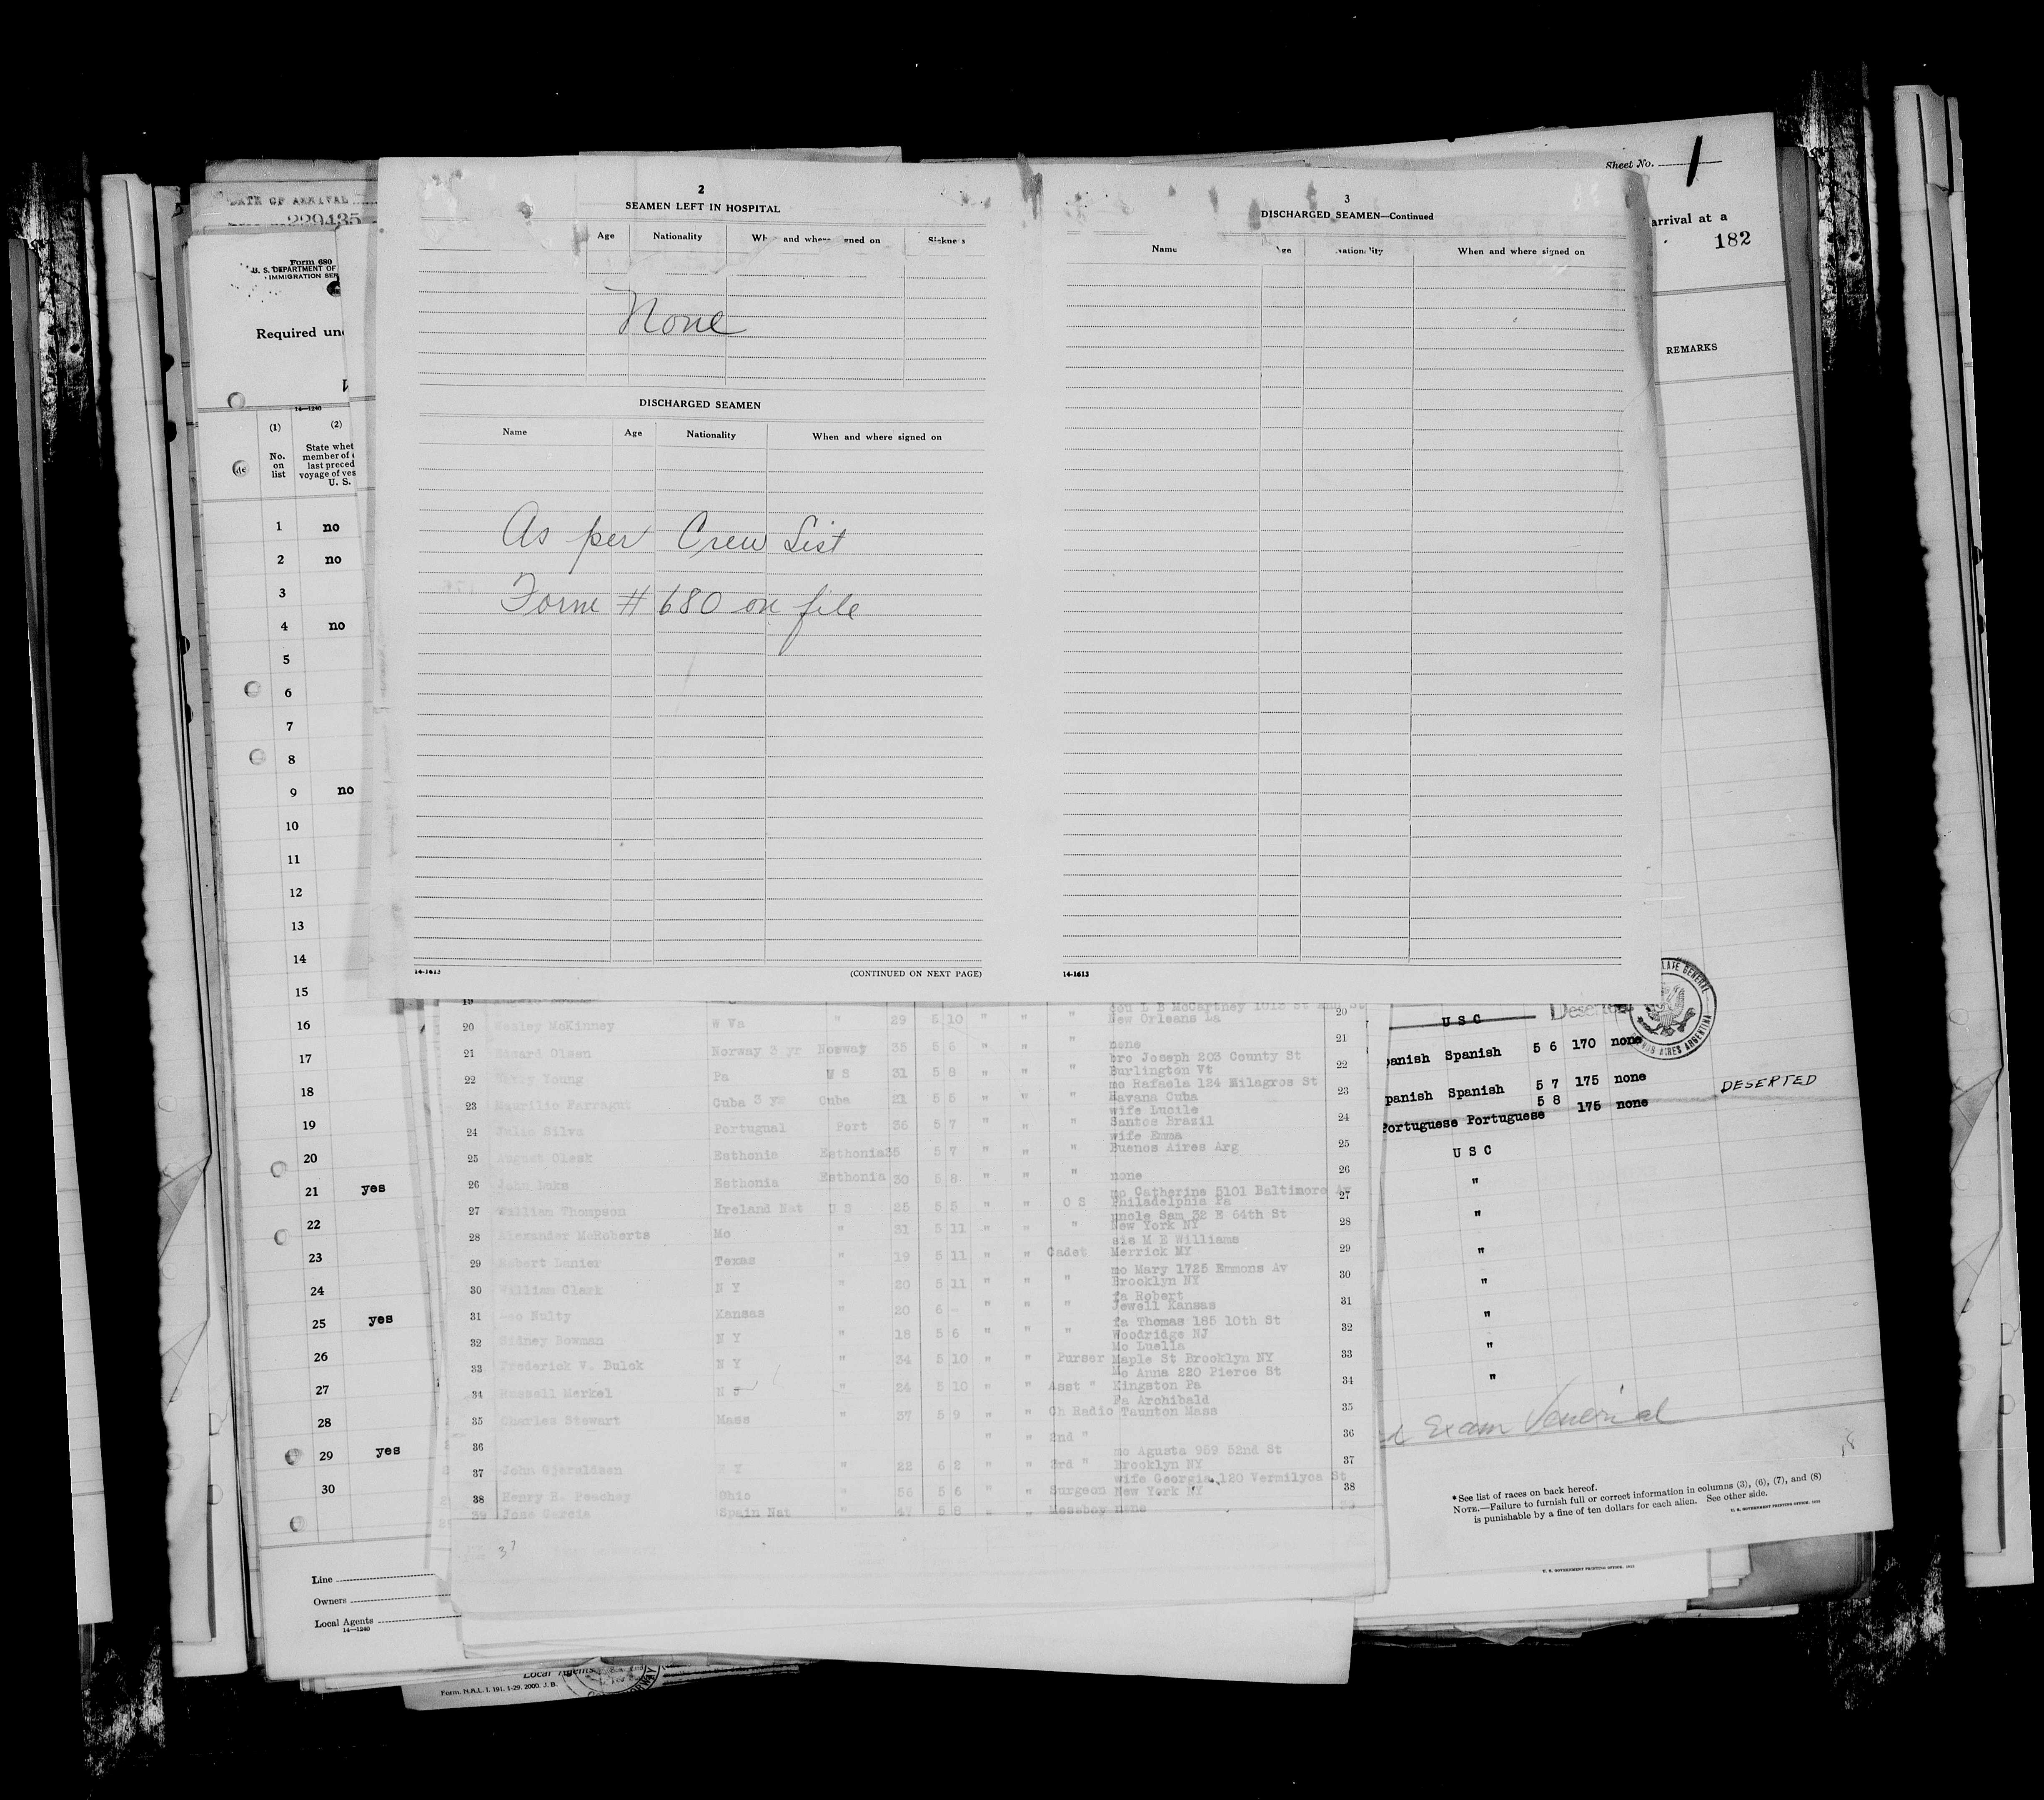 Sheet No. 1
DATE OF ARRIVAL
229435
arrival at a
182
REMARKS
Form 680
U. S. DEPARTMENT OF
IMMIGRATION SER
Required und
14—1240
(1) (2)
No. on list
State whet
member of
last preced
voyage of ves
U. S.
1 no
2 no
3
4 no
5
6
7
8
9 no
10
11
12
13
14
15
16
17
18
19
20
21 yes
22
23
24
25 yes
26
27
28
29 yes
30
Line
Owners
Local Agents
14—1240
2
SEAMEN LEFT IN HOSPITAL
Age Nationality and where signed on
None
DISCHARGED SEAMEN
Name Age Nationality When and where signed on
As per Crew List
Form # 680 on file
14-1613
(CONTINUED ON NEXT PAGE)
3
DISCHARGED SEAMEN—Continued
Name Age Nationality When and where signed on
14-1613
19 L B McCartney 1012 St Ann St 20
20 Wesley McKinney W Va " 29 5 10 " " " New Orleans La
21 Edward Olsen Norway 3 yr Norway 35 5 6 " none 21
bro Joseph 203 County St
22 Young Pa U S 31 5 8 " " " Burlington Vt 22
mo Rafaela 124 Milagros St
23 Maurilio Farragut Cuba 3 yr Cuba 21 5 5 " " " Havana Cuba 23
wife Lucile
24 Julio Silva Portugual Port 36 5 7 " " " Santos Brazil 24
wife Emma
25 August Olesk Esthonia Esthonia 35 5 7 " " " Buenos Aires Arg 25
26 John Luks Esthonia Esthonia 30 5 8 " " " none 26
mo Catherine 5101 Baltimore Av
27 William Thompson Ireland Nat U S 25 5 5 " " O S Philadelphia Pa 27
uncle Sam 32 E 64th St
28 Alexander McRoberts Mo " 31 5 11 " " " New York NY 28
sis M E Williams
29 Robert Lanier Texas " 19 5 11 " " Cadet Merrick NY 29
mo Mary 1725 Emmons Av
30 William Clark N Y " 20 5 11 " " " Brooklyn NY 30
fa Robert
31 Leo Nulty Kansas " 20 6 - " " " Jewell Kansas 31
fa Thomas 185 10th St
32 Sidney Bowman N Y " 18 5 6 " " " Woodridge NJ 32
Mo Luella
33 Frederick V. Bulck N Y " 34 5 10 " " Purser Maple St Brooklyn NY 33
Mo Anna 220 Pierce St
34 Russell Merkel N J " 24 5 10 " " Asst " Kingston Pa 34
Fa Archibald
35 Charles Stewart Mass " 37 5 9 " " Ch Radio Taunton Mass 35
36 " " 2nd " 36
mo Agusta 959 52nd St
37 John Gjeraldsen N Y " 22 6 2 " " 3rd " Brooklyn NY 37
wife Georgia 120 Vermilyea St
38 Henry H. Peachey Ohio " 56 5 6 " " Surgeon New York NY 38
39 Jose Garcia Spain Nat " 47 5 8 " " Messboy none 39
37
U S C Deserted
BUENOS AIRES ARGENTINA
panish Spanish 5 6 170 none
panish Spanish 5 7 175 none DESERTED
Portuguese Portuguese 5 8 175 none
U S C
"
"
"
"
"
"
"
Exam Venerial
*See list of races on back hereof.
NOTE.—Failure to furnish full or correct information in columns (3), (6), (7), and (8)
is punishable by a fine of ten dollars for each alien. See other side.
U. S. GOVERNMENT PRINTING OFFICE
U. S. GOVERNMENT PRINTING OFFICE
Local Agents
Form. N.A.L. I. 191. 1-29. 2000. J. B.